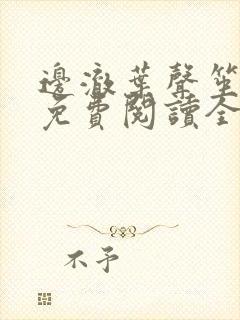 邊澈葉聲笙
免費閱讀全
不予